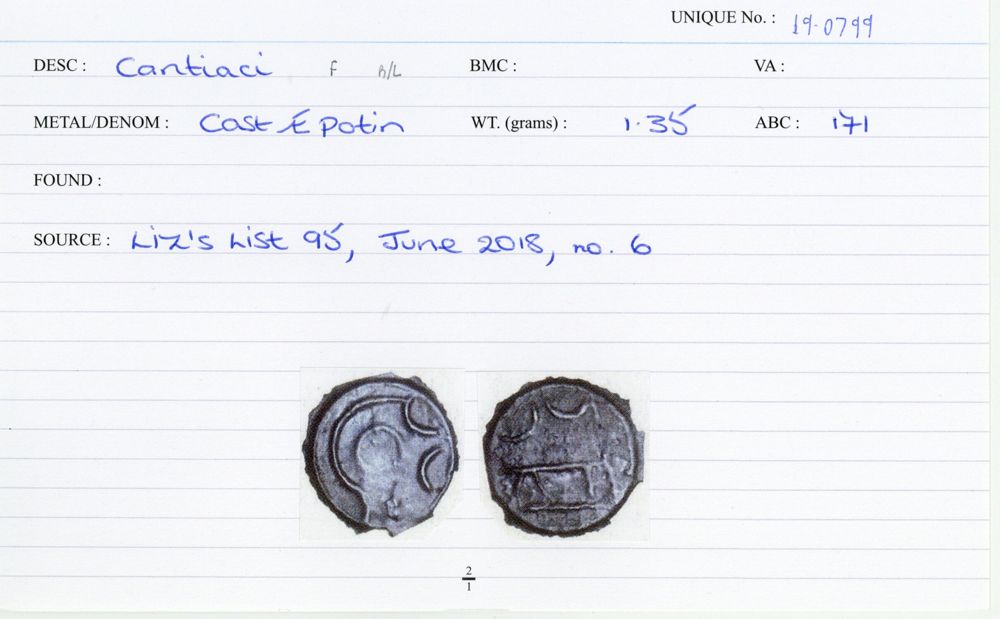 UNIQUE No. : 19-0799
DESC : Cantiaci F B/L BMC : VA :
METAL/DENOM : Cast Æ Potin WT. (grams) : 1.35 ABC : 171
FOUND :
SOURCE : Liz's List 95, June 2018, no. 6
2
1